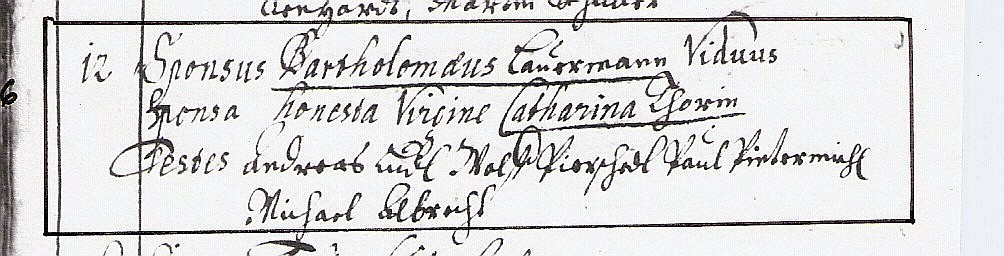 12 Sponsus Bartholomæus Lauermann Viduus
Sponsa honesta Virgine Catharina Thorin
Testes Andreas Wolf Paul
Michael Albrecht